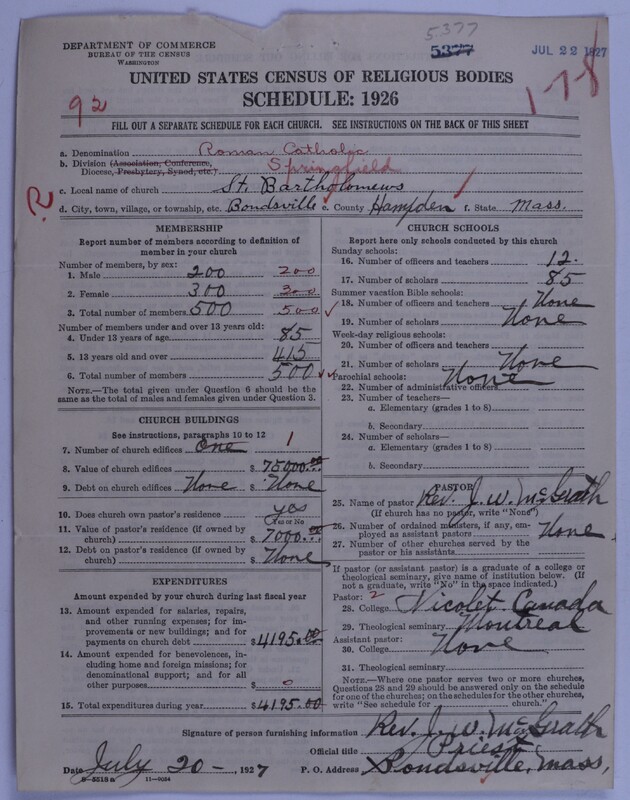 5377
DEPARTMENT OF COMMERCE
BUREAU OF THE CENSUS
WASHINGTON
5377
JUL 22 1927
UNITED STATES CENSUS OF RELIGIOUS BODIES
SCHEDULE: 1926
92
178
FILL OUT A SEPARATE SCHEDULE FOR EACH CHURCH. SEE INSTRUCTIONS ON THE BACK OF THIS SHEET
a. Denomination Roman Catholic
b. Division (Association, Conference, Diocese, Presbytery, Synod, etc.) Springfield
c. Local name of church St. Bartholomews
R
d. City, town, village, or township, etc. Bondsville e. County Hampden f. State Mass.
MEMBERSHIP
Report number of members according to definition of
member in your church
Number of members, by sex:
1. Male 200 200
2. Female 300 300
3. Total number of members 500 500
Number of members under and over 13 years old:
4. Under 13 years of age 85
5. 13 years old and over 415
6. Total number of members 500
NOTE.—The total given under Question 6 should be the
same as the total of males and females given under Question 3.
CHURCH BUILDINGS
See instructions, paragraphs 10 to 12
7. Number of church edifices One 1
8. Value of church edifices $ 75000.00
9. Debt on church edifices None $ None
10. Does church own pastor's residence yes
Yes or No
11. Value of pastor's residence (if owned by
church) $ 7000.00
12. Debt on pastor's residence (if owned by
church) $ None
EXPENDITURES
Amount expended by your church during last fiscal year
13. Amount expended for salaries, repairs,
and other running expenses; for im-
provements or new buildings; and for
payments on church debt $4195.00
14. Amount expended for benevolences, in-
cluding home and foreign missions; for
denominational support; and for all
other purposes $ 0
15. Total expenditures during year $4195.00
CHURCH SCHOOLS
Report here only schools conducted by this church
Sunday schools:
16. Number of officers and teachers 12.
17. Number of scholars 85
Summer vacation Bible schools:
18. Number of officers and teachers None
19. Number of scholars None
Week-day religious schools:
20. Number of officers and teachers
21. Number of scholars None
Parochial schools:
22. Number of administrative officers None
23. Number of teachers—
a. Elementary (grades 1 to 8)
b. Secondary
24. Number of scholars—
a. Elementary (grades 1 to 8)
b. Secondary
PASTOR
25. Name of pastor Rev. J. W. McGrath
(If church has no pastor, write "None")
26. Number of ordained ministers, if any, em-
ployed as assistant pastors None
27. Number of other churches served by the
pastor or his assistants
If pastor (or assistant pastor) is a graduate of a college or
theological seminary, give name of institution below. (If
not a graduate, write "No" in the space indicated.)
Pastor: 2
28. College Nicolet Canada
29. Theological seminary Montreal
Assistant pastor:
30. College None
31. Theological seminary
NOTE.—Where one pastor serves two or more churches,
Questions 28 and 29 should be answered only on the schedule
for one of the churches; on the schedules for the other churches,
write "See schedule for church."
Signature of person furnishing information Rev. J. W. McGrath
Official title Priest
Date July 20 - , 1927 P. O. Address Bondsville, Mass,
8-5518a 11-9034